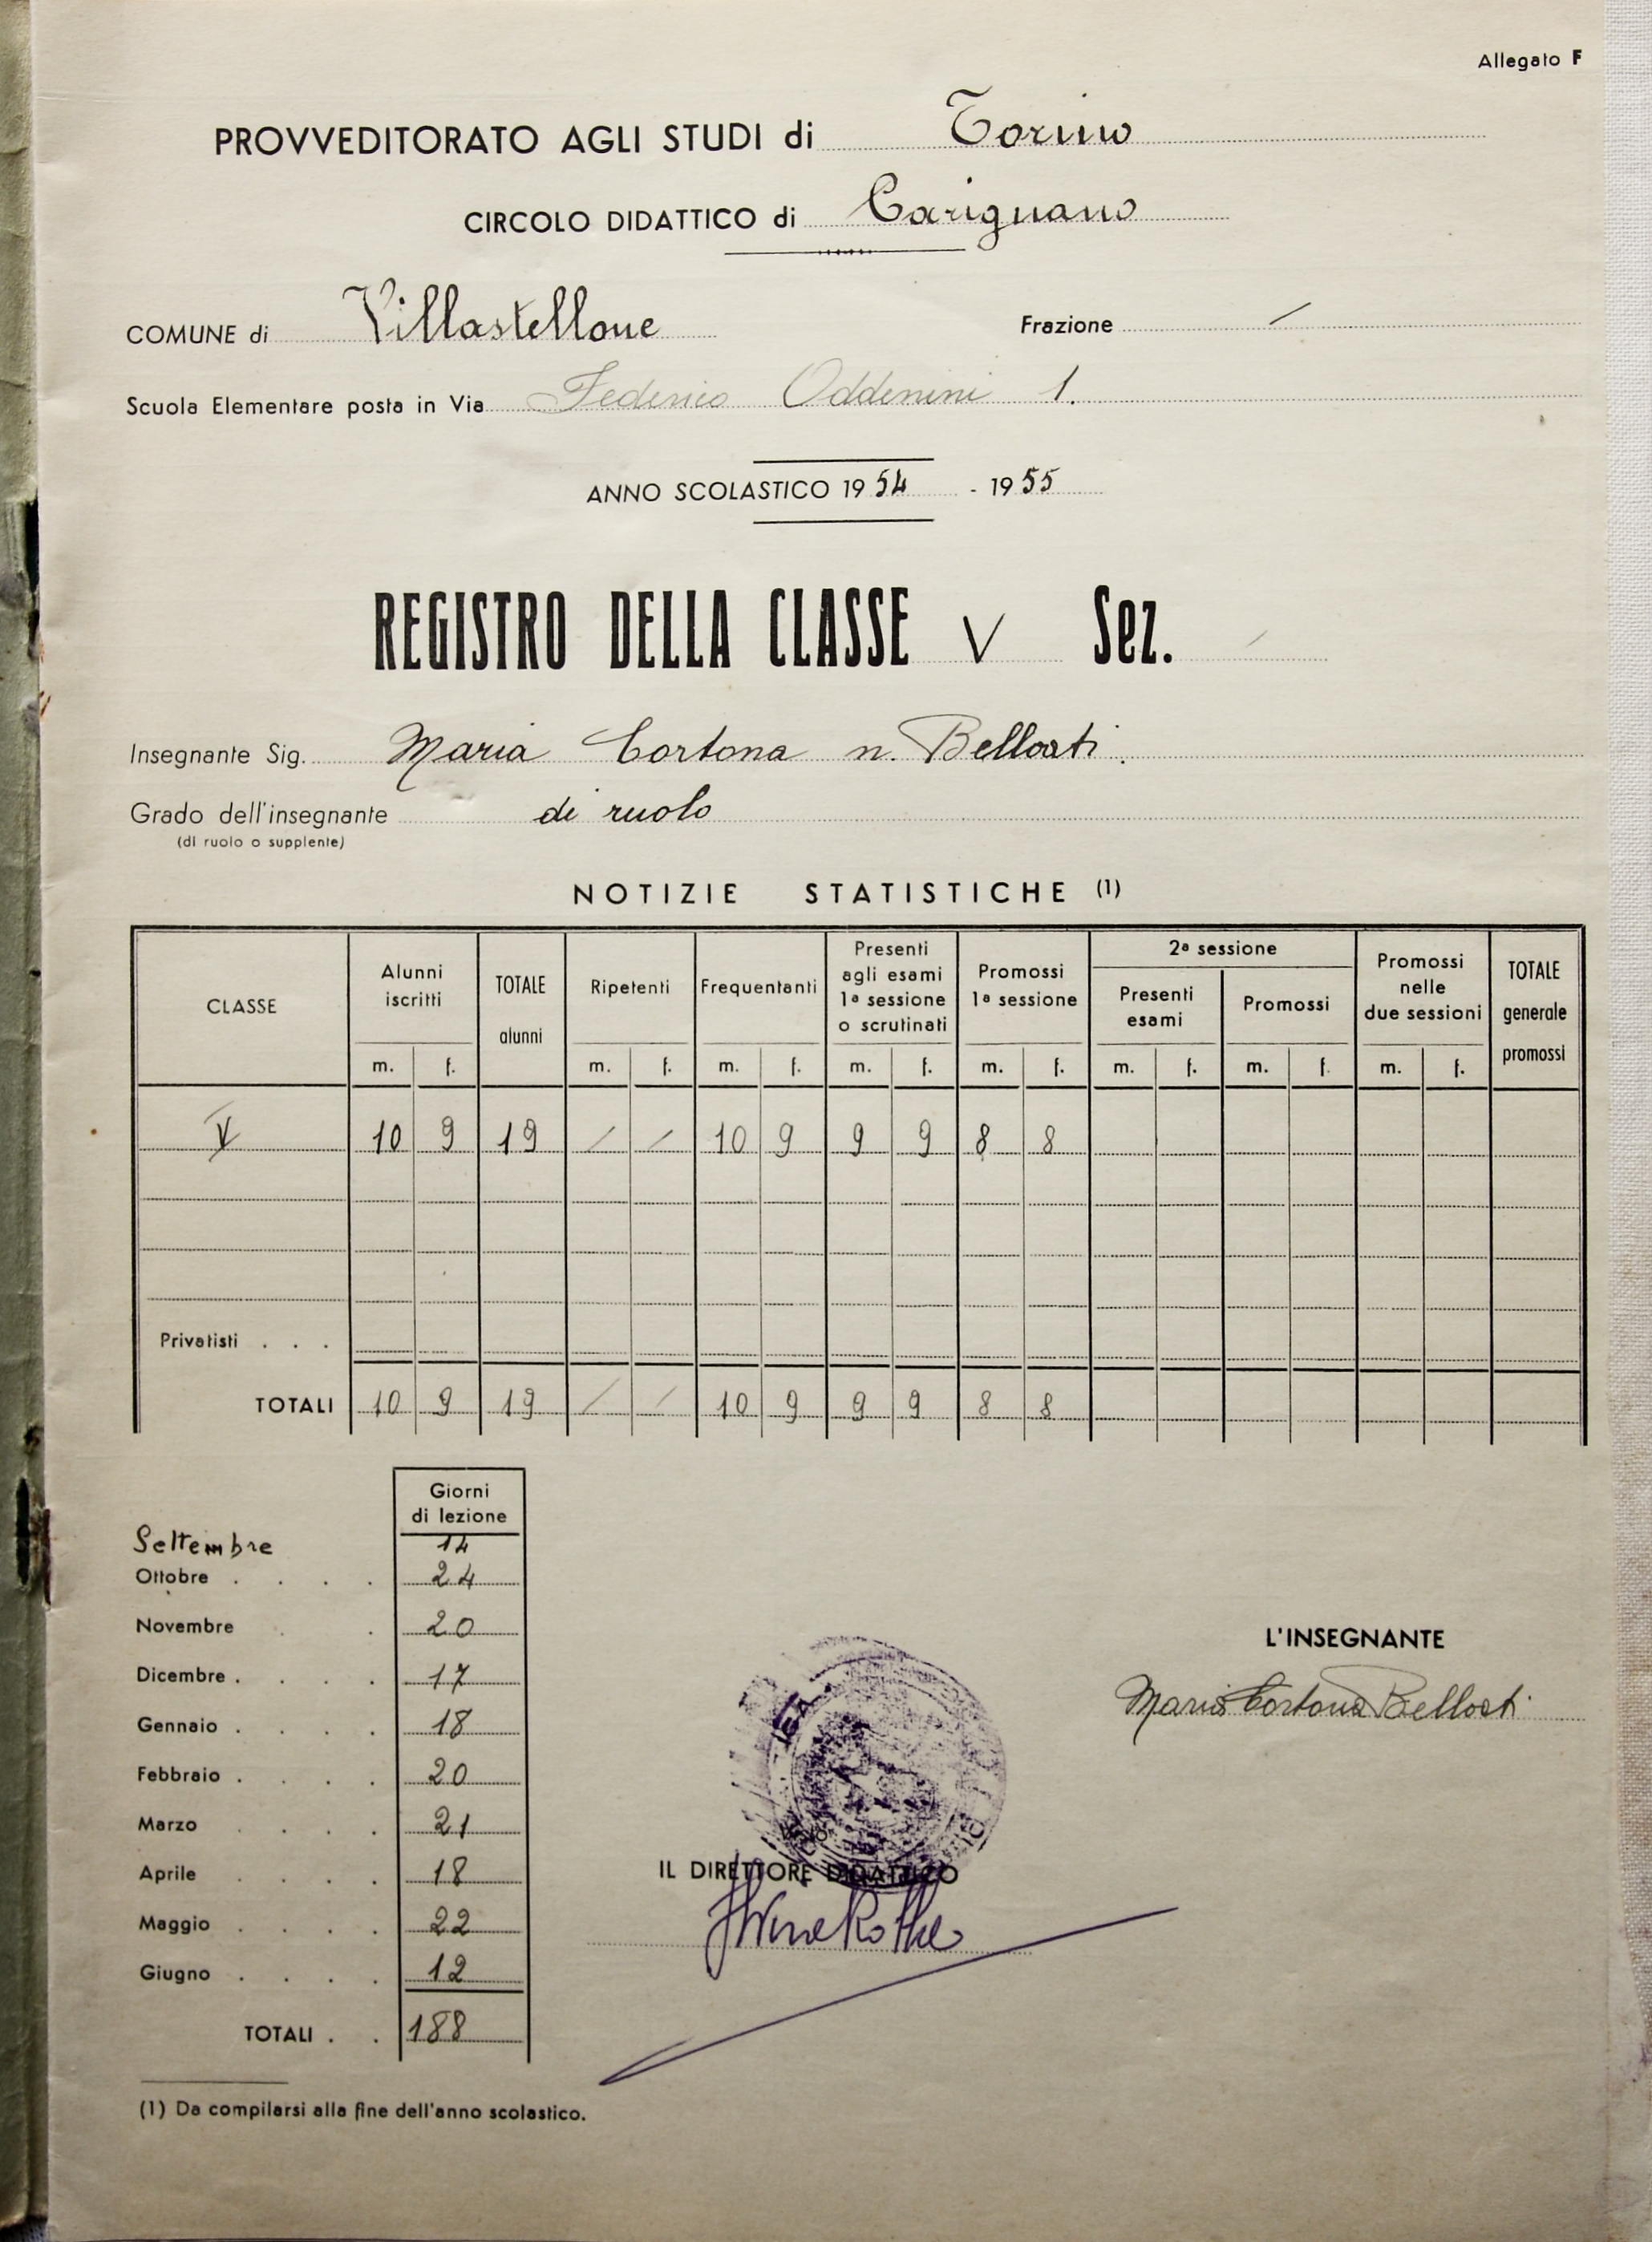 Allegato F
PROVVEDITORATO AGLI STUDI di Torino
CIRCOLO DIDATTICO di Carignano
COMUNE di Villastellone Frazione /
Scuola Elementare posta in Via Federico Oddenini 1.
ANNO SCOLASTICO 1954 - 1955
REGISTRO DELLA CLASSE V Sez. /
Insegnante Sig. Maria Cortona n. Bellosti.
Grado dell'insegnante di ruolo
(di ruolo o supplente)
NOTIZIE STATISTICHE (1)
CLASSE Alunni iscritti TOTALE alunni Ripetenti Frequentanti Presenti agli esami 1ª sessione o scrutinati Promossi 1ª sessione 2ª sessione Presenti esami Promossi Promossi nelle due sessioni TOTALE generale promossi
m. f. m. f. m. f. m. f. m. f. m. f. m. f. m. f.
V 10 9 19 / / 10 9 9 9 8 8
Privatisti . . .
TOTALI 10 9 19 / / 10 9 9 9 8 8
Giorni
di lezione
Settembre 14
Ottobre . . . . 24
Novembre . . 20
Dicembre . . . . 17
Gennaio . . . . 18
Febbraio . . . . 20
Marzo . . . . 21
Aprile . . . . 18
Maggio . . . . 22
Giugno . . . . 12
TOTALI . . 188
L'INSEGNANTE
Maria Cortona Bellosti
IL DIRETTORE DIDATTICO
(1) Da compilarsi alla fine dell'anno scolastico.